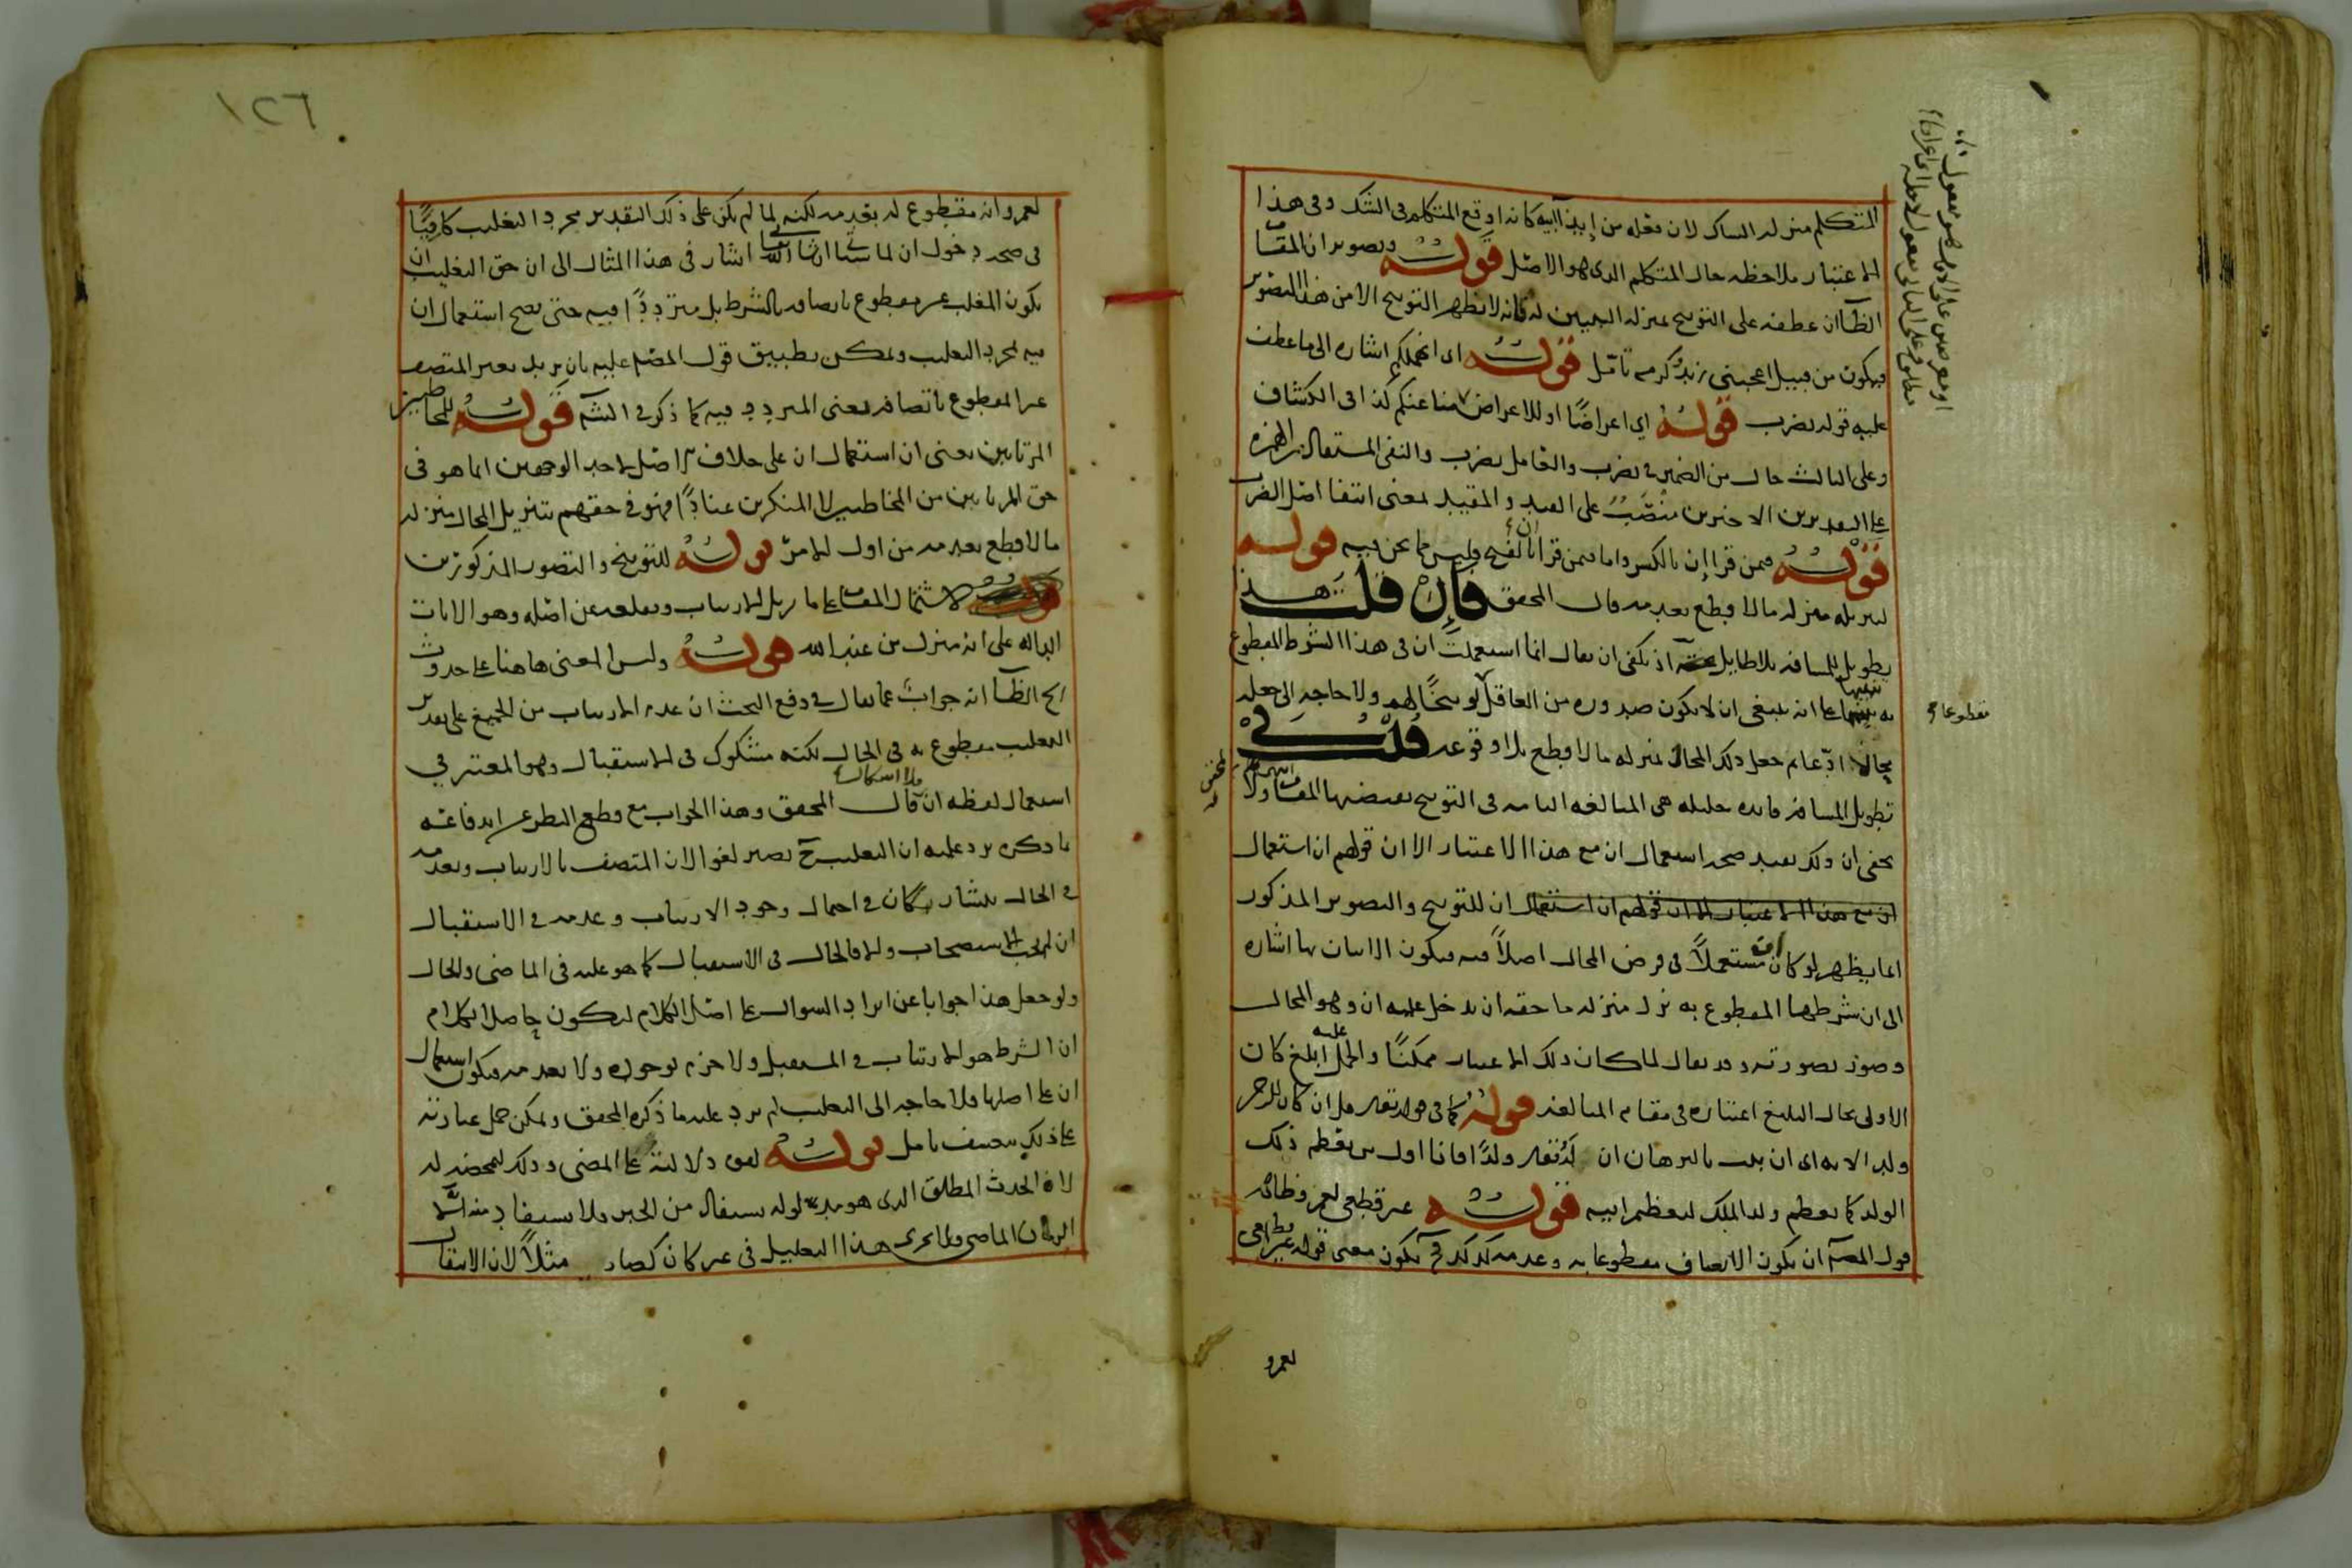 المتكلم منزلة الساك لان فعله من إيذا آبيه كانه اوقع المتكلم فى الشك وفى هذا
الاعتبار ملاحظه حال المتكلم الدى هو الاصل قوله وتصوير ان المقا
الظآ ان عطفه على التوبيخ بمنزله التبيين له فانه لا يظهر التوبيخ الا من هذا التصوير
فيكون من قبيل اعجبنى زيد وكرمه تامّل قوله اى انهملكم اشاره الى ما عطف
عليه قوله نضرب قوله اي اعراضًا او للاعراض منا عنكم كذا فى الكشاف
وعلى الثالث حال من الضمير فى نضرب والعامل نضرب والنفى المستفاد من الهمزه
على التقديرين الاخيرين منصب على القيد والمقيد بمعنى انتفا اصل الضرب
قوله فمن قرا إن بالكسر واما فمن قرا بالفتح فليس مما نحن فيه قوله
لتنزيله منزله ما لا قطع بعدمه قال المحقق فإن قلت هذا
تطويل للمسافه بلا طايل اذ يكفى ان يقال انما استعملت ان فى هذا الشرط المقطوع
به تنبيها على انه ينبغى ان لا يكون صدوره من العاقل توبيخًا لهم ولا حاجه الى جعله
محالًا ادّعا ثم جعل ذلك المحال بمنزله ما لا قطع بلا وقوعه قلت في
تطويل المسافه فايده جليله هى المبالغه التامه فى التوبيخ يقتضيها المقام ولا
يخفى ان ذلك يفيد صحه استعمال ان مع هذا الاعتبار الا ان قولهم ان استعمال
ان مع هذا الاعتبار الا ان قولهم ان استعمال ان للتوبيخ والتصوير المذكور
انما يظهر لو كان ان مستعملاً فى فرض المحال اصلاً فيه فيكون الاتيان بها اشاره
الى ان شرطها المقطوع به نزل منزله ما حقه ان يدخل عليه ان وهو المحال
وصور بصورته وقد يقال لما كان ذلك الاعتبار ممكنًا والحمل عليه ابلغ كان
الاولى بحال البليغ اعتباره فى مقام المبالغه قوله كما فى قوله تعا قل ان كان للرحمن
ولد الايه اى ان ثبت بالبرهان ان له تعا ولدًا فانا اول من يعظم ذلك
الولد كما يعظم ولد الملك لتعظيم ابيه قوله غير قطعى لعمرو ظاهر
قول المصـ ان يكون الاتصاف مقطوعا به وعدمه كذلك فح يكون معنى قوله غير قطعى
مقطوعا
لعمرو
١٢٦
لعمرو انه مقطوع له بعدمه لكنه لما لم يكن على ذلك التقدير مجرد التغليب كافيًا
فى صحه دخول ان لما سياتى ان شا الله تعا اشار فى هذا المثال الى ان حق التغليب ان
يكون المغلب غير مقطوع باتصافه بالشرط بل مترددًا فيه حتى يصح استعمال ان
فيه لمجرد التغليب ويمكن تطبيق قول المصـ عليه بان يريد بغير المتصف
غير المقطوع باتصافه بمعنى المتردد فيه كما ذكر فى الشـ قوله للمخاطبين
المرتابين يعنى ان استعمال ان على خلاف الاصل لاحد الوجهين انما هو فى
حق المرتابين من المخاطبين لا المنكرين عنادًا فهو فى حقهم تنزيل المحال منزله
ما لا قطع بعدمه من اول الامر قوله للتوبيخ والتصوير المذكورين
لاشتمال المقام على ما يزيل الارتياب ويقلعه عن اصله وهو الايات
الداله على انه منزل من عند الله قوله وليس المعنى هاهنا على حدوث
الخ الظآ انه جواب عما يقال فى دفع البحث ان عدم الارتياب من الجميع على تقدير
التغليب مقطوع به فى الحال لكنه مشكوك فى الاستقبال وهو المعتبر في
استعمال لفظه ان بلا اشكال قال المحقق وهذا الجواب مع قطع النظر عن اندفاعه
بما ذكره يرد عليه ان التغليب ح يصير لغوا لان المتصف بالارتياب وبعدمه
فى الحال يتشاركان فى احتمال وجود الارتياب وعدمه فى الاستقبال
ان لم يجب الاستصحاب والا فالحال فى الاستقبال كما هو عليه فى الماضى والحال
ولو جعل هذا جوابا عن ايراد السوال على اصل الكلام ليكون حاصل الكلام
ان الشرط هو الارتياب فى المستقبل ولا جزم بوجوده ولا بعدمه فيكون استعمال
ان على اصلها ولا حاجه الى التغليب لم يرد عليه ما ذكره المحقق ويمكن حمل عبارته
على ذلك بتعسف تامل قوله لقوه دلالته على المضى وذلك لتمحضه له
لان الحدث المطلق الدى هو مدلوله يستفاد من الخبر فلا يستفاد منه الا
الزمان الماضى ولا يجرى هذا التعليل فى غير كان كصار مثلاً لان الانتقال